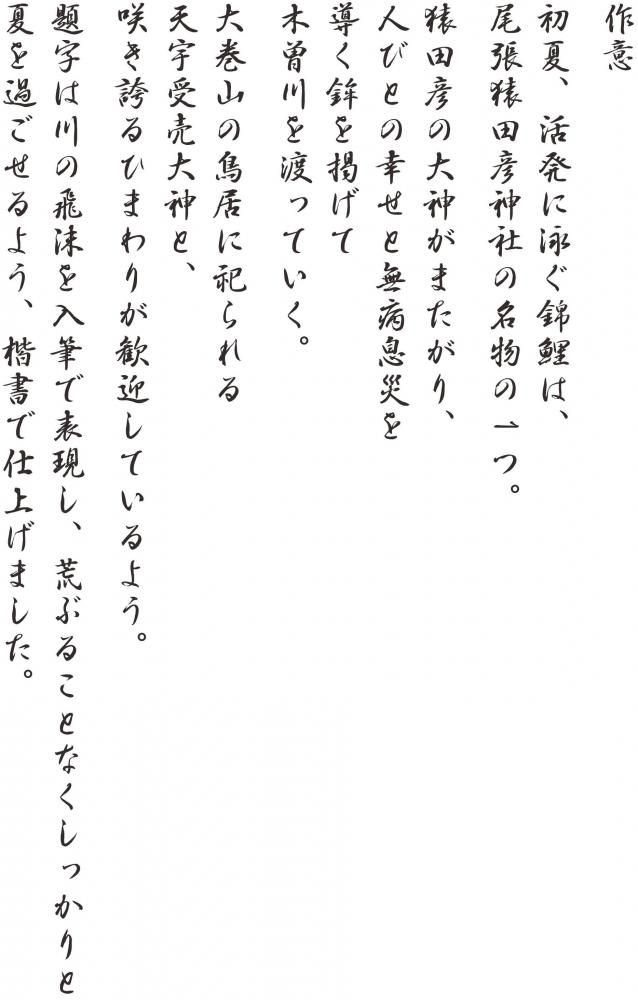 作意
初夏、活発に泳ぐ錦鯉は、
尾張猿田彦神社の名物の一つ。
猿田彦の大神がまたがり、
人びとの幸せと無病息災を
導く鉾を掲げて
木曽川を渡っていく。
大巻山の鳥居に祀られる
天宇受売大神と、
咲き誇るひまわりが歓迎しているよう。
題字は川の飛沫を入筆で表現し、荒ぶることなくしっかりと
夏を過ごせるよう、楷書で仕上げました。